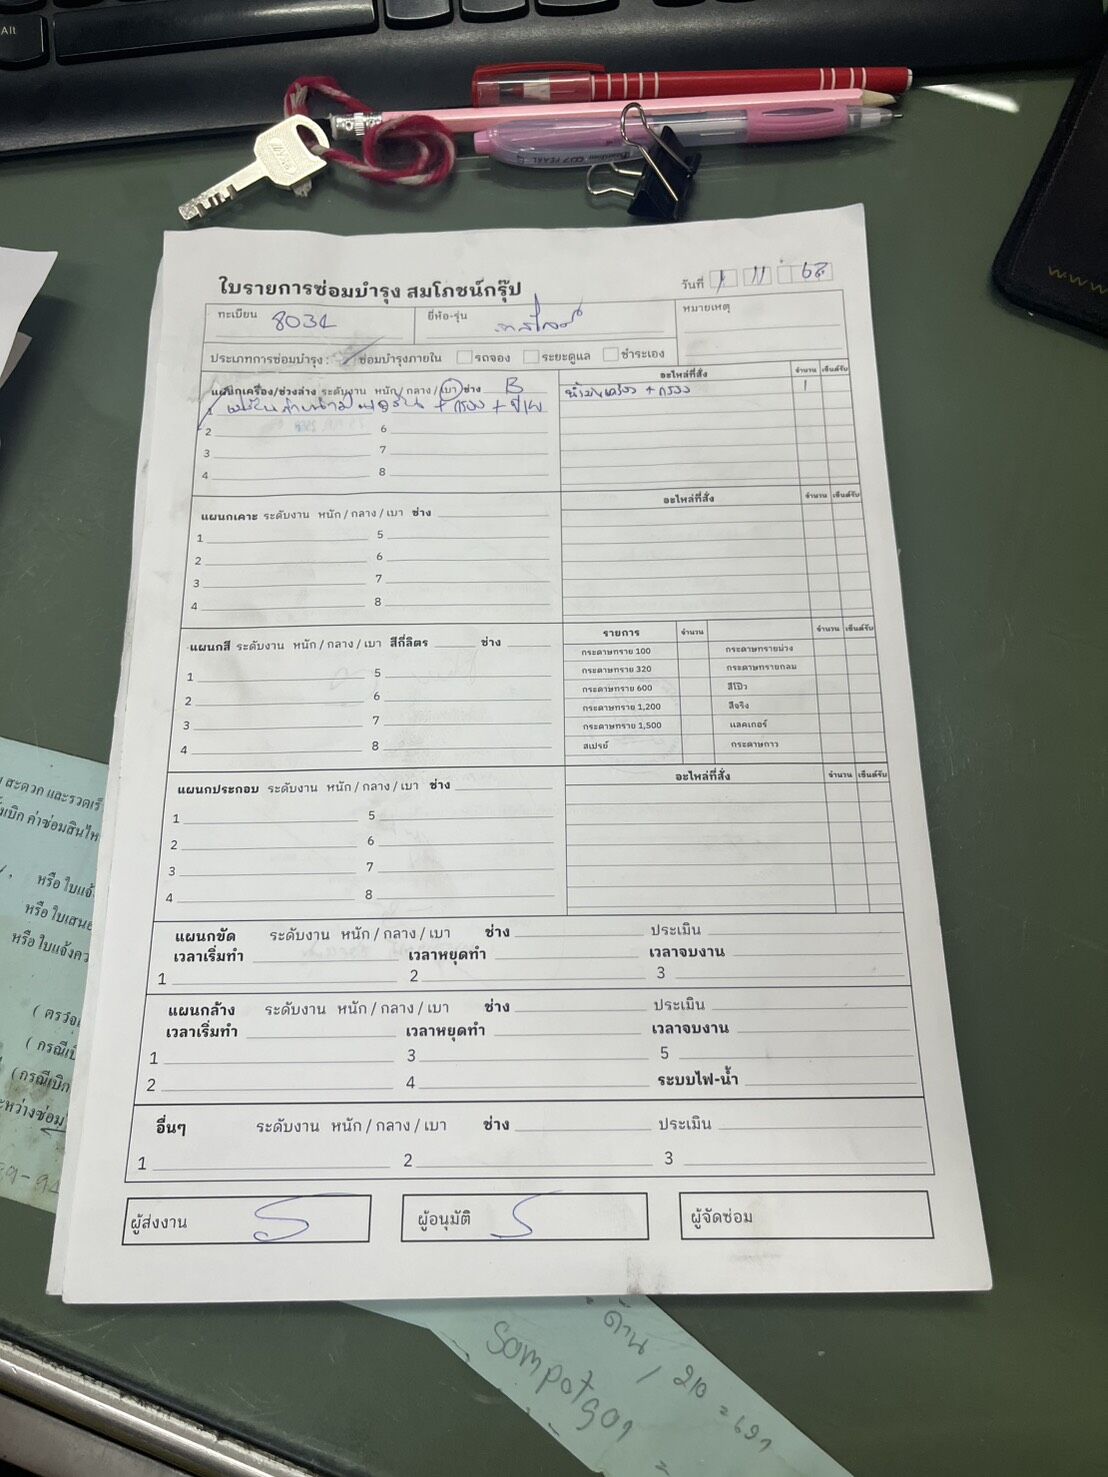 Alt
ใบรายการซ่อมบำรุง สมโภชน์กรุ๊ป
วันที่ 1 11 68
ทะเบียน 8031
ยี่ห้อ-รุ่น
หมายเหตุ
ประเภทการซ่อมบำรุง : ซ่อมบำรุงภายใน รถจอง ระยะดูแล ชำระเอง
แผนกเครื่อง/ช่วงล่าง ระดับงาน หนัก / กลาง / เบา ช่าง B
อะไหล่ที่สั่ง จำนวน เซ็นต์รับ
น้ำมันเครื่อง + กรอง 1
1 + กรอง +
2 6
3 7
4 8
แผนกเคาะ ระดับงาน หนัก / กลาง / เบา ช่าง
อะไหล่ที่สั่ง จำนวน เซ็นต์รับ
1 5
2 6
3 7
4 8
แผนกสี ระดับงาน หนัก / กลาง / เบา สีกี่ลิตร ช่าง
รายการ จำนวน จำนวน เซ็นต์รับ
กระดาษทราย 100 กระดาษทรายม่วง
กระดาษทราย 320 กระดาษทรายกลม
กระดาษทราย 600 สีโป๊ว
กระดาษทราย 1,200 สีจริง
กระดาษทราย 1,500 แลคเกอร์
สเปรย์ กระดาษกาว
1 5
2 6
3 7
4 8
แผนกประกอบ ระดับงาน หนัก / กลาง / เบา ช่าง
อะไหล่ที่สั่ง จำนวน เซ็นต์รับ
1 5
2 6
3 7
4 8
แผนกขัด ระดับงาน หนัก / กลาง / เบา ช่าง ประเมิน
เวลาเริ่มทำ เวลาหยุดทำ เวลาจบงาน
1 2 3
แผนกล้าง ระดับงาน หนัก / กลาง / เบา ช่าง ประเมิน
เวลาเริ่มทำ เวลาหยุดทำ เวลาจบงาน
1 3 5
2 4 ระบบไฟ-น้ำ
อื่นๆ ระดับงาน หนัก / กลาง / เบา ช่าง ประเมิน
1 2 3
ผู้ส่งงาน
ผู้อนุมัติ
ผู้จัดซ่อม
สะดวก และรวดเร็
ค่าซ่อมสินไห
หรือ ใบแจ้
หรือ ใบเสนอ
หรือ ใบแจ้งคว
( กรณีเบิ
( กรณีเบิก
ระหว่างซ่อม
ด้าน / 210 =
Sompotgor